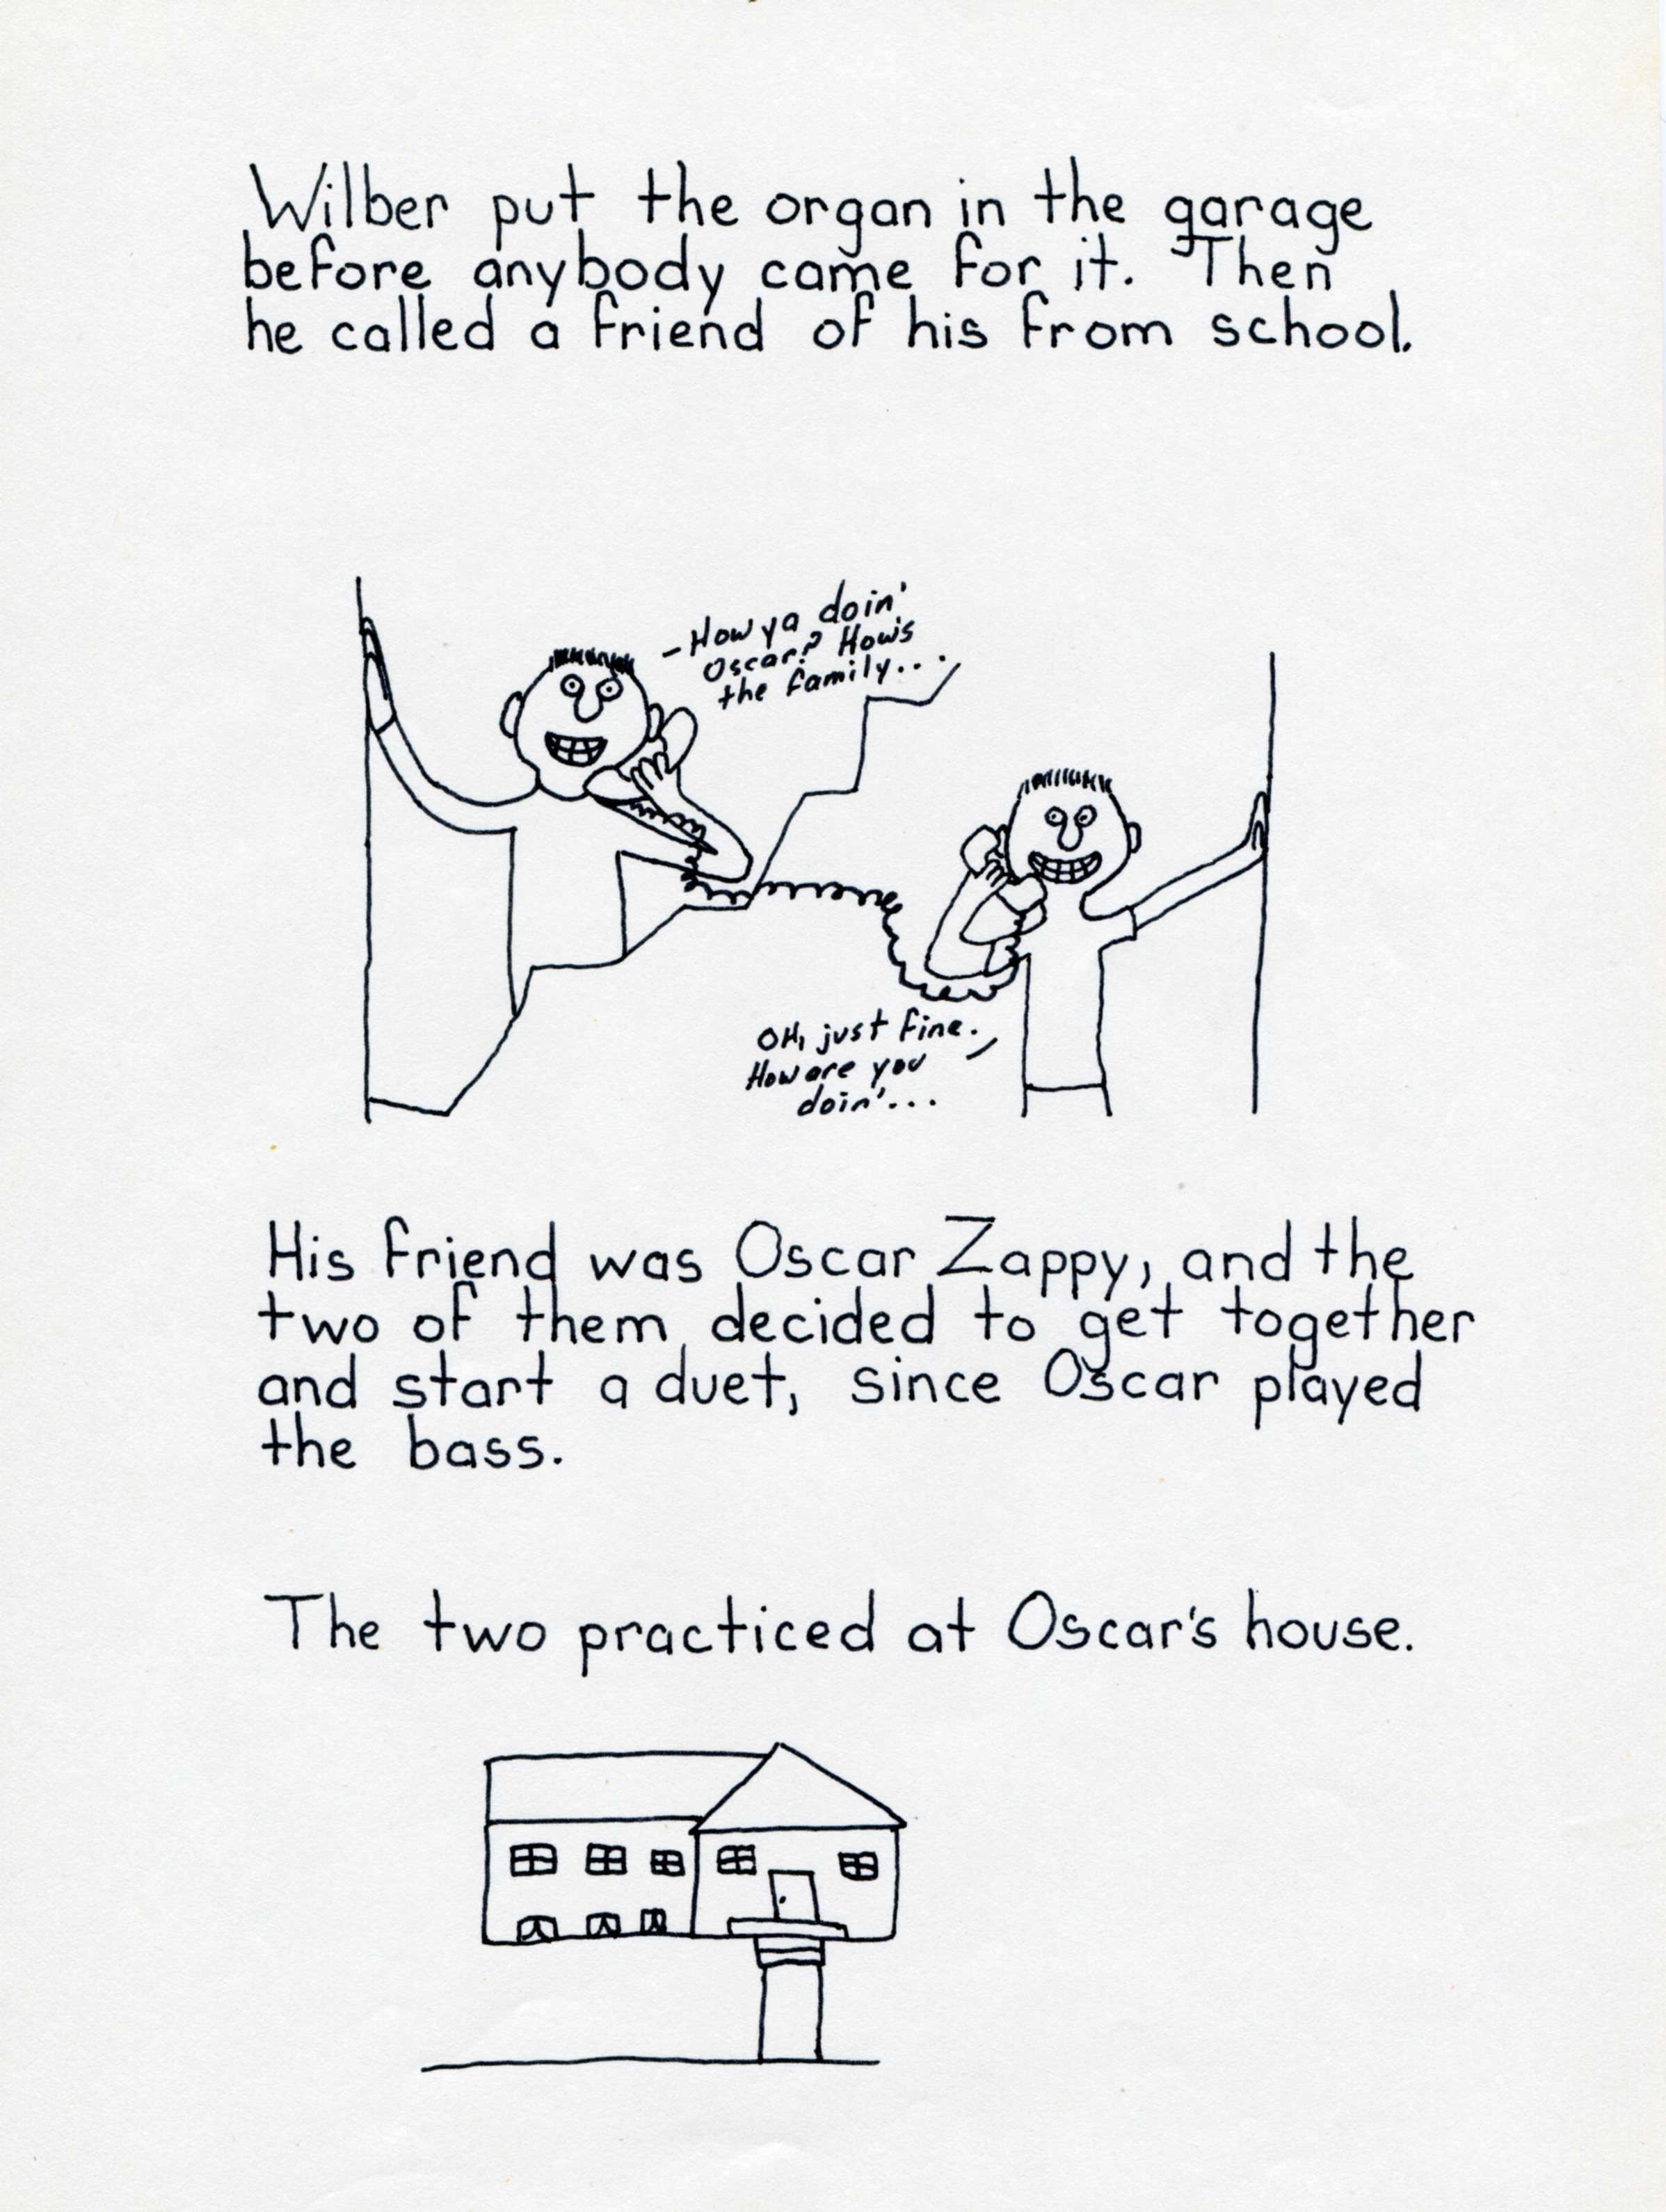 Wilber put the organ in the garage
before anybody came for it. Then
he called a friend of his from school.
- How ya doin'
Oscar? How's
the family...
OH, just fine.
How are you
doin'...
His friend was Oscar Zappy, and the
two of them decided to get together
and start a duet, since Oscar played
the bass.
The two practiced at Oscar's house.